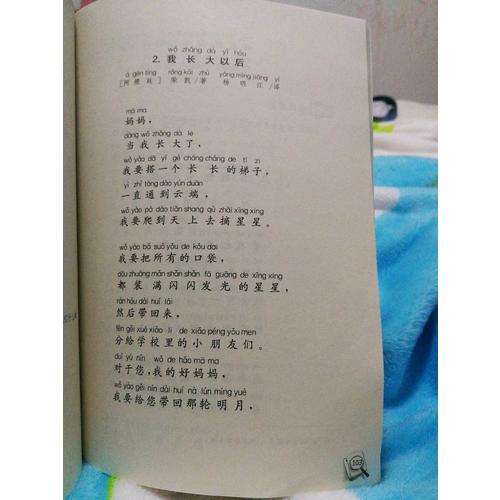 wǒ zhǎng dà yǐ hòu
2. 我 长 大以后
ā gēn tíng róng kǎi zhù yáng míng jiāng yì
[阿根廷] 荣凯/著 杨明江/译
mā ma
妈妈，
dāng wǒ zhǎng dà le
当我长大了，
wǒ yào dā yí gè cháng cháng de tī zi
我要搭一个长长的梯子，
yì zhí tōng dào yún duān
一直通到云端，
wǒ yào pá dào tiān shang qù zhāi xīng xing
我要爬到天上去摘星星。
wǒ yào bǎ suǒ yǒu de kǒu dai
我要把所有的口袋，
dōu zhuāng mǎn shǎn shǎn fā guāng de xīng xing
都装满闪闪发光的星星，
rán hòu dài huí lái
然后带回来，
fēn gěi xué xiào li de xiǎo péng yǒu men
分给学校里的小朋友们。
duì yú nín wǒ de hǎo mā ma
对于您，我的好妈妈，
wǒ yào gěi nín dài huí nà lún míng yuè
我要给您带回那轮明月，
103